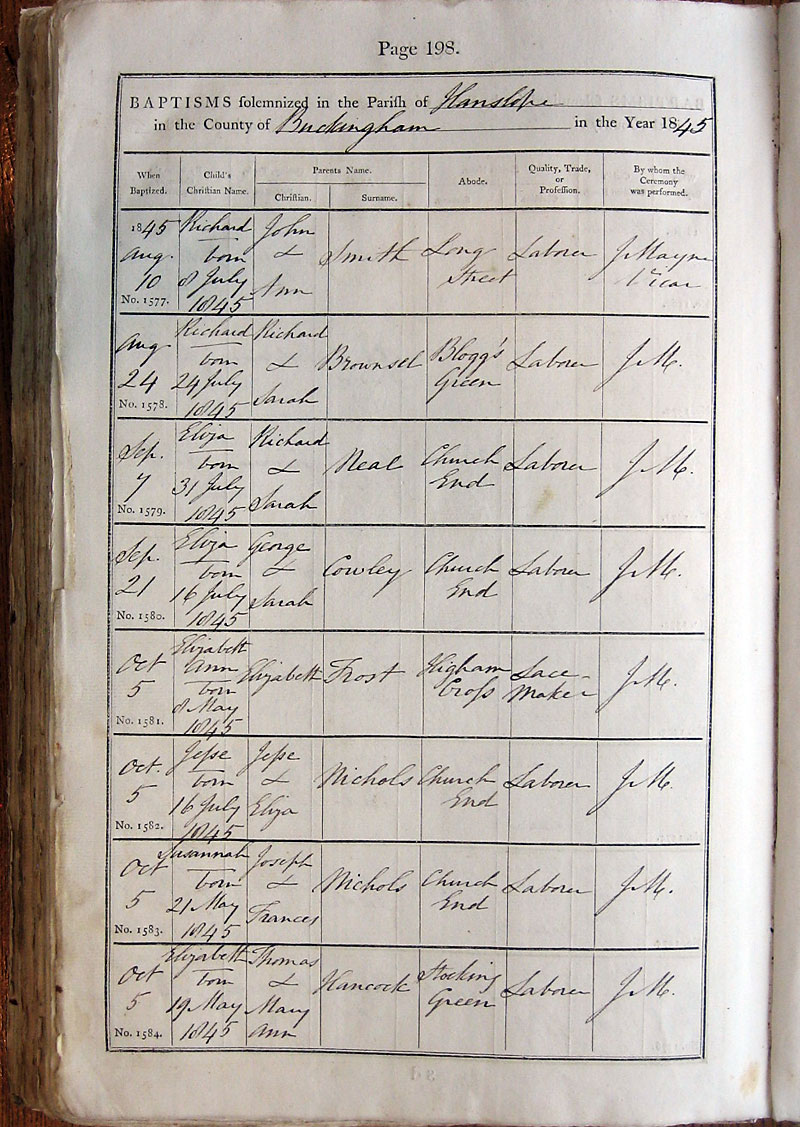 Page 198.
BAPTISMS solemnized in the Parish of Hanslope
in the County of Buckingham in the Year 1845
When Baptized. Child's Christian Name. Parents Name. Christian. Surname. Abode. Quality, Trade, or Profession. By whom the Ceremony was performed.
1845 Aug. 10 No. 1577. Richard born 8 July 1845 John & Ann Smith Long Street Laborer J. Mayne Vicar
Aug 24 No. 1578. Richard born 24 July 1845 Richard & Sarah Brownsel Blogg's Green Laborer J. M.
Sep. 7 No. 1579. Eliza born 31 July 1845 Richard & Sarah Neal Church End Laborer J. M.
Sep. 21 No. 1580. Eliza born 16 July 1845 George & Sarah Cowley Church End Laborer J. M.
Oct 5 No. 1581. Elizabeth Ann born 8 May 1845 Elizabeth Frost Higham Cross Lace-Maker J. M.
Oct. 5 No. 1582. Jesse born 16 July 1845 Jesse & Eliza Nichols Church End Laborer J. M.
Oct 5 No. 1583. Susannah born 21 May 1845 Joseph & Frances Nichols Church End Laborer J. M.
Oct 5 No. 1584. Elizabeth born 19 May 1845 Thomas & Mary Ann Hancock Stocking Green Laborer J. M.